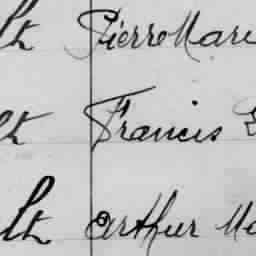 lt Pierre Mari
lt Francis E
lt Arthur Mo